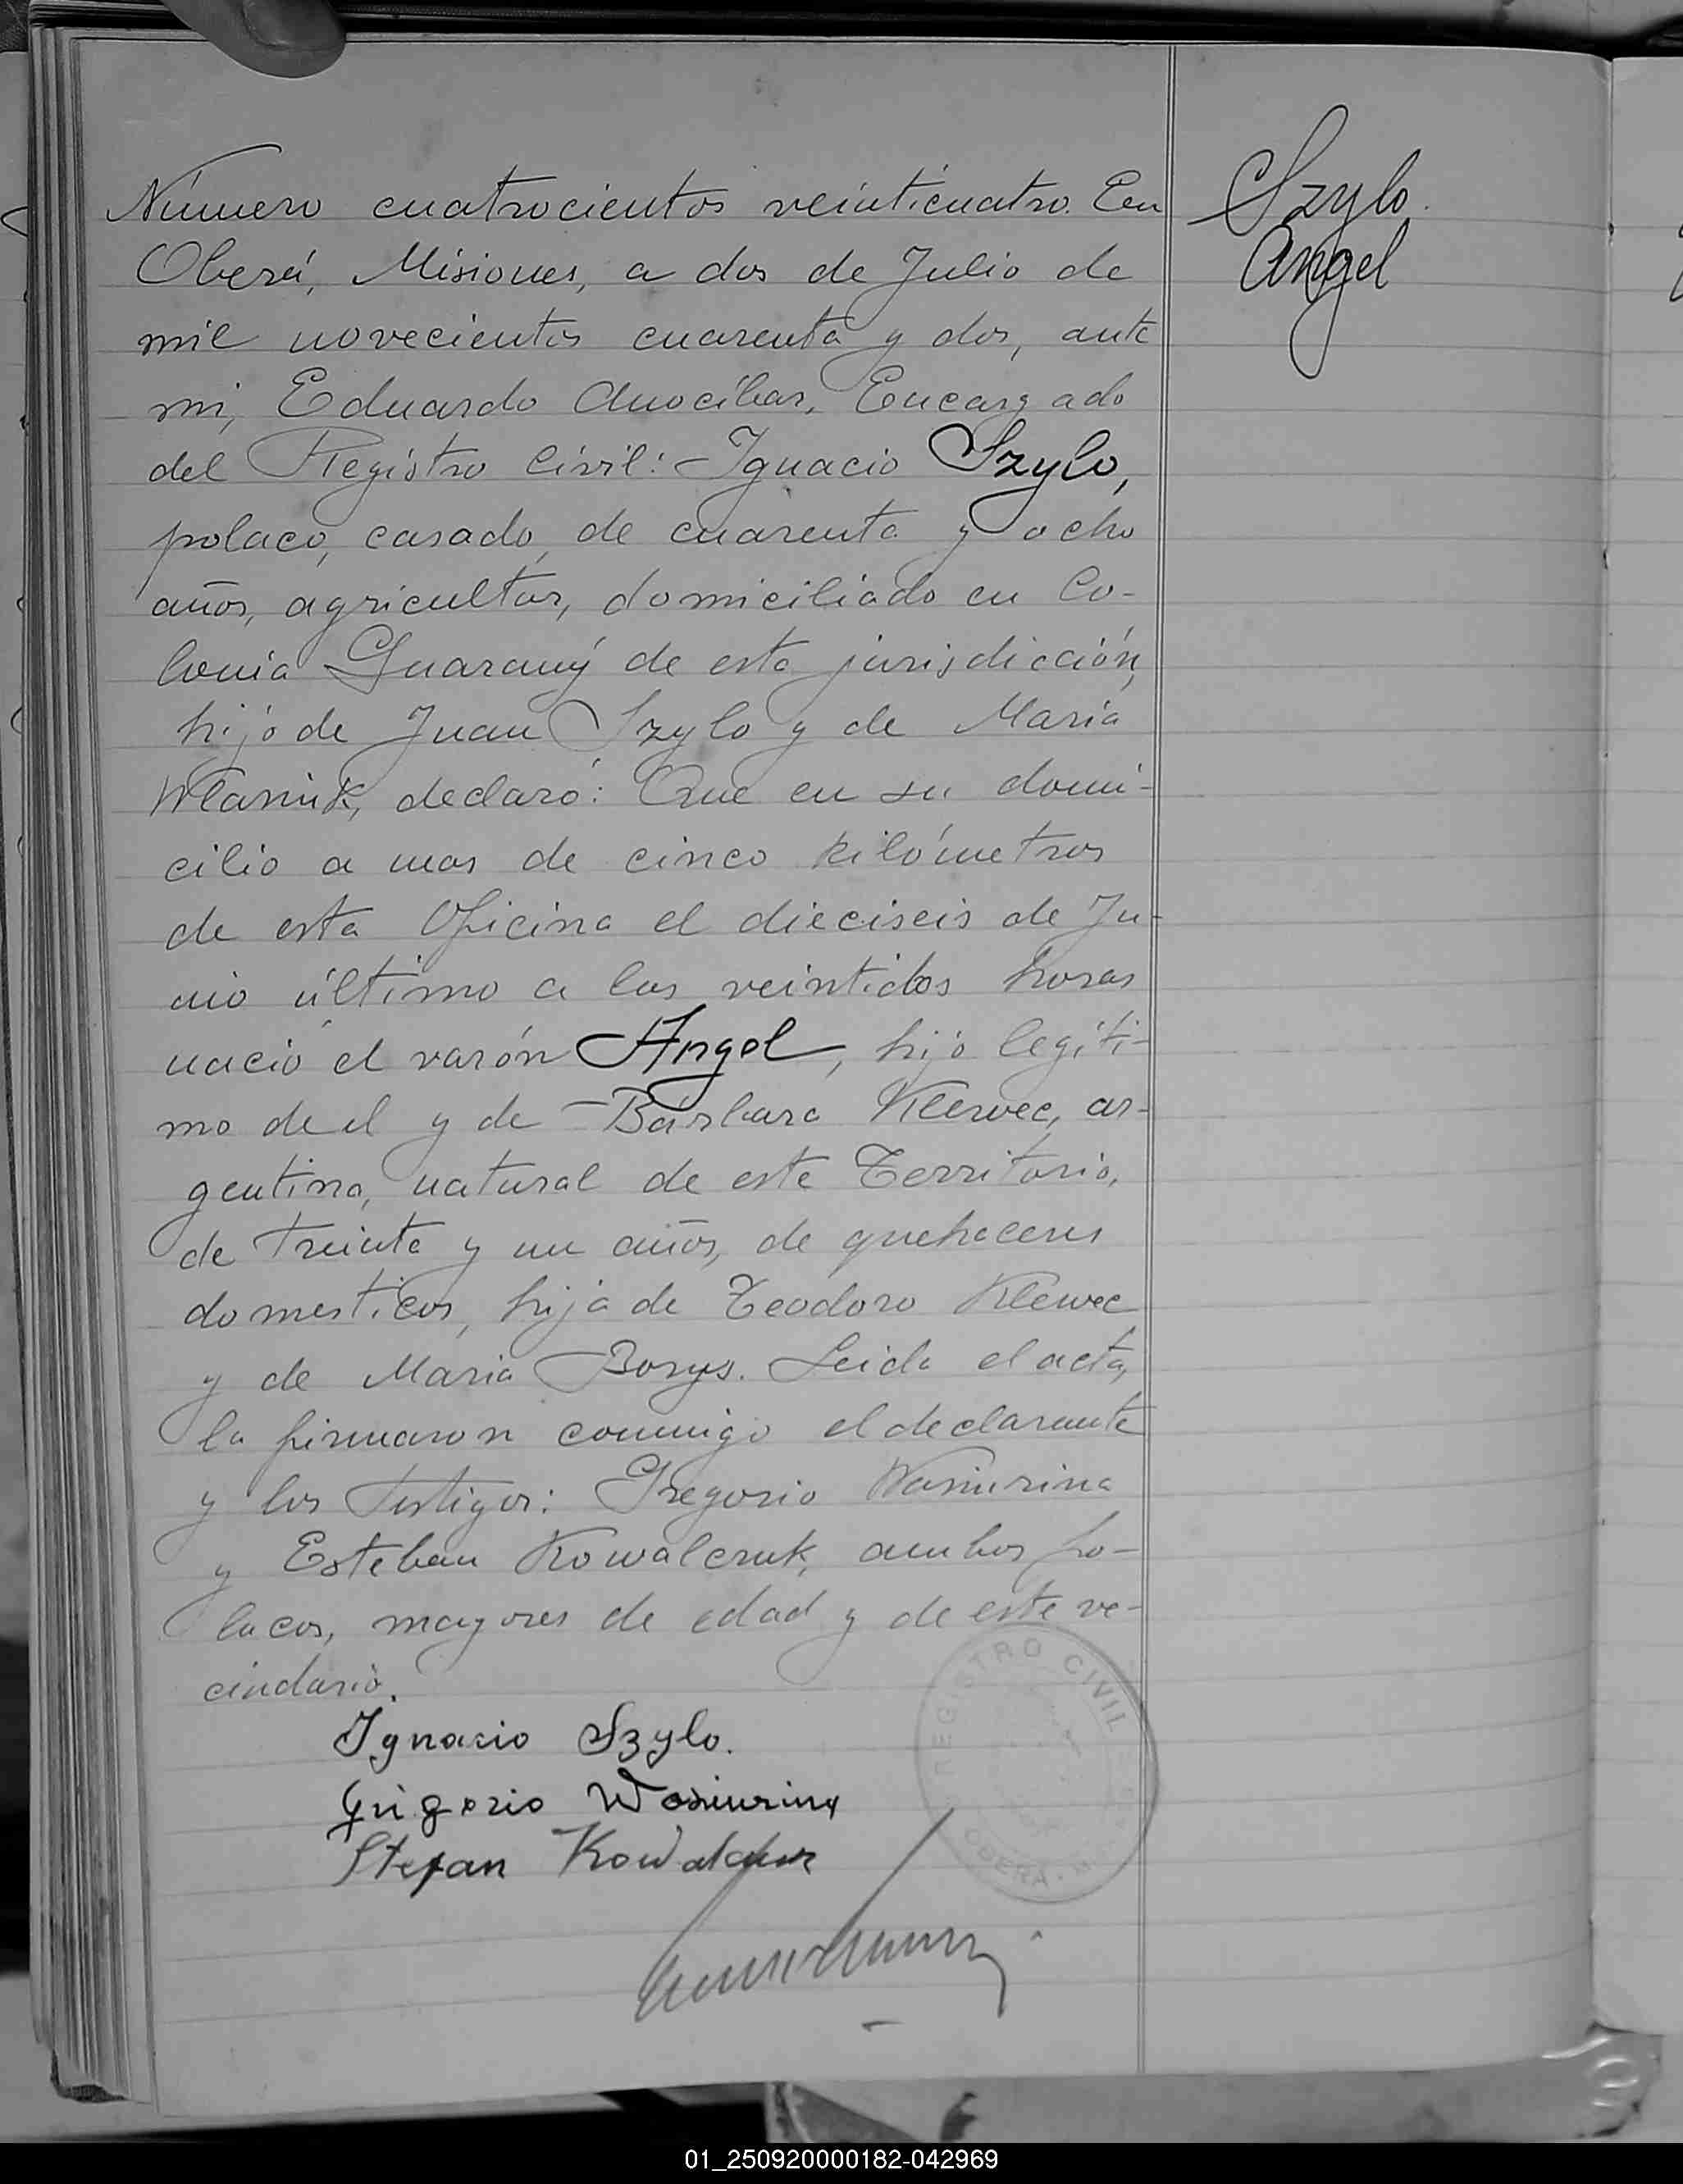 Número cuatrocientos veinticuatro. En
Oberá, Misiones, a dos de Julio de
mil novecientos cuarenta y dos, ante
mi, Eduardo Anocíbar, Encargado
del Registro Civil: Ignacio Szylo,
polaco, casado, de cuarenta y ocho
años, agricultor, domiciliado en Co-
lonia Guarany de esta jurisdicción,
hijo de Juan Szylo y de María
declaró: Que en su domi-
cilio a mas de cinco kilómetros
de esta Oficina el dieciseis de Ju-
nio último a las veintidos horas
nació el varón Angel, hijo legíti-
mo de el y de Bárbara Klewec, ar-
gentina, natural de este Territorio,
de treinta y un años, de quehaceres
domesticos, hija de Teodoro Klewec
y de Maria Borys. Leida el acta,
la firmaron conmigo el declarante
y los testigos: Gregorio Wasiurina
y Esteban Kowalczuk, ambos po-
lacos, mayores de edad y de este ve-
cindario.
Ignacio Szylo.
Grigorio Wasiurina
Stefan
Szylo
Angel
REGISTRO CIVIL
OBERA
01_250920000182-042969